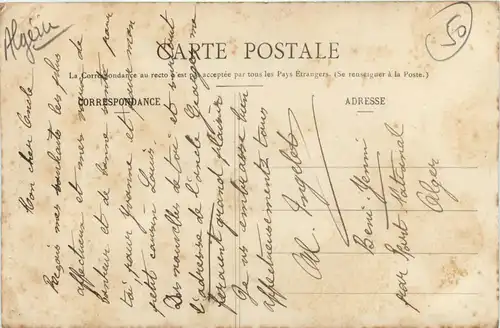 Algérie
50
CARTE POSTALE
La Correspondance au recto n'est pas acceptée par tous les Pays Étrangers. (Se renseigner à la Poste.)
CORRESPONDANCE
ADRESSE
Mon cher Oncle
Reçois mes souhaits les plus
affectueux et mes vœux de
bonheur et de bonne santé pour
toi pour Yvonne et pour mon
petit cousin Louis.
Des nouvelles de toi et surtout
l'adresse de l'oncle Georges me
feraient grand plaisir
Je vous embrasse bien
affectueusement tous
M. Ingelot
Beni-Yenni
par Fort National
Alger